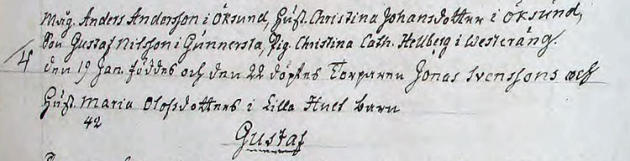 Mág. Anders Andersson i Öksund, Hust. Christina Johansdotter i Öksund,
Son Gustaf Nilsson i Gunnersta, Pig. Christina Cath. Hellberg i Westeräng.
4 den 19 Jan. föddes och den 22 döptes Torparen Jonas Svenssons och
Hust. Maria Olofsdotters i Lilla barn
42
Gustaf